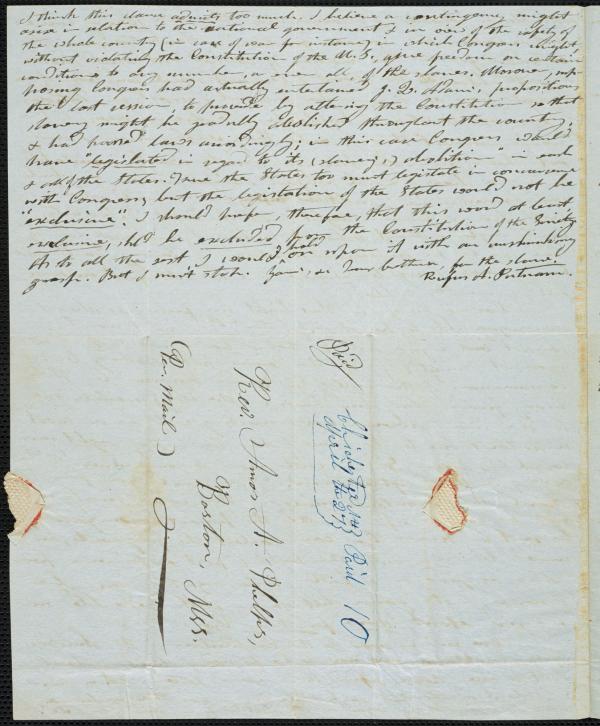 I think this clause admits too much. I believe a contingency might
arise in relation to the national government & in view of the safety of
the whole country (in case of war for instance) in which Congress might,
without violating the Constitution of the U.S., give freedom on certain
conditions to any number, or even all, of the slaves. Moreover, sup-
posing Congress had actually entertained J. Q. Adams, propositions
the last session, to provide by altering the Constitution so that
slavery might be gradually abolished throughout the country,
& had passed laws accordingly; in this case Congress would
have "legislated in regard to its (slavery,) abolition" in each
& all of the States. True the States too must legislate in concurrence
with Congress, but the legislation of the States would not be
"exclusive". I should prefer, therefore, that this word at least,
exclusive, shd be excluded from the Constitution of the Society.
As to all the rest I would hold on upon it with an unshrinking
grasp. But I must stop. Yours, &c Your brother, for the slave.
Rufus A. Putnam.
Paid
Chichester N.H.
April
Paid 10
Rev. Amos A. Phelps,
Boston, Mss.
(Per Mail)